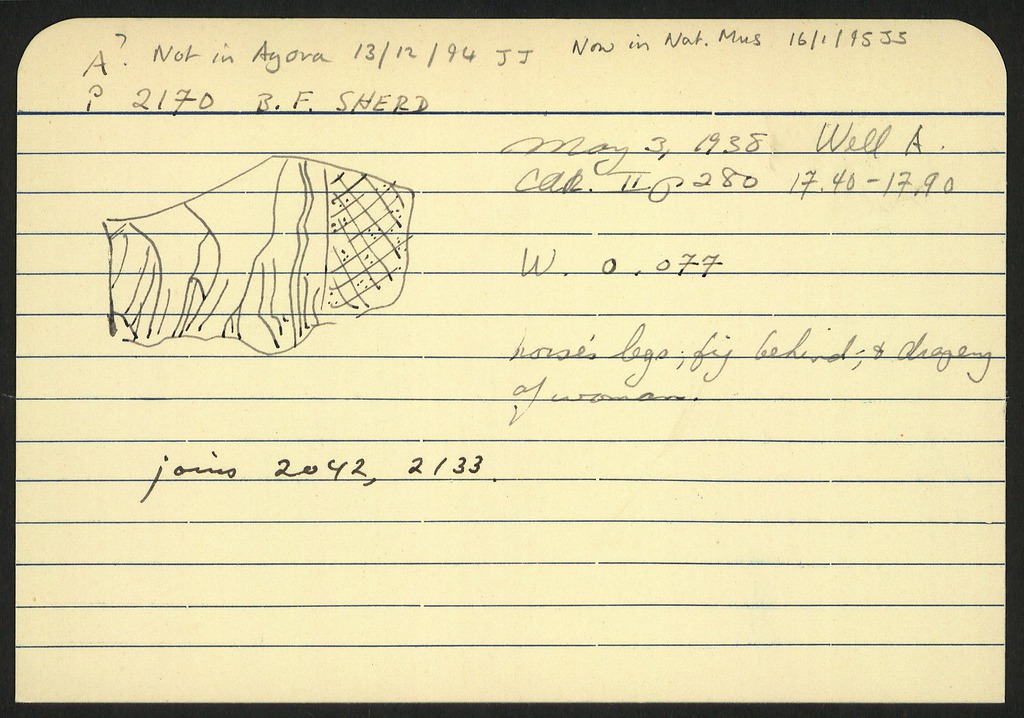 A? Not in Agora 13/12/94 JJ Now in Nat. Mus 16/1/95 JJ
P 2170 B.F. SHERD
May 3, 1938 Well A.
Car. II p 280 17.40-17.90
W. 0.077
horse's legs; fig behind; & drapery
of woman.
joins 2042, 2133.